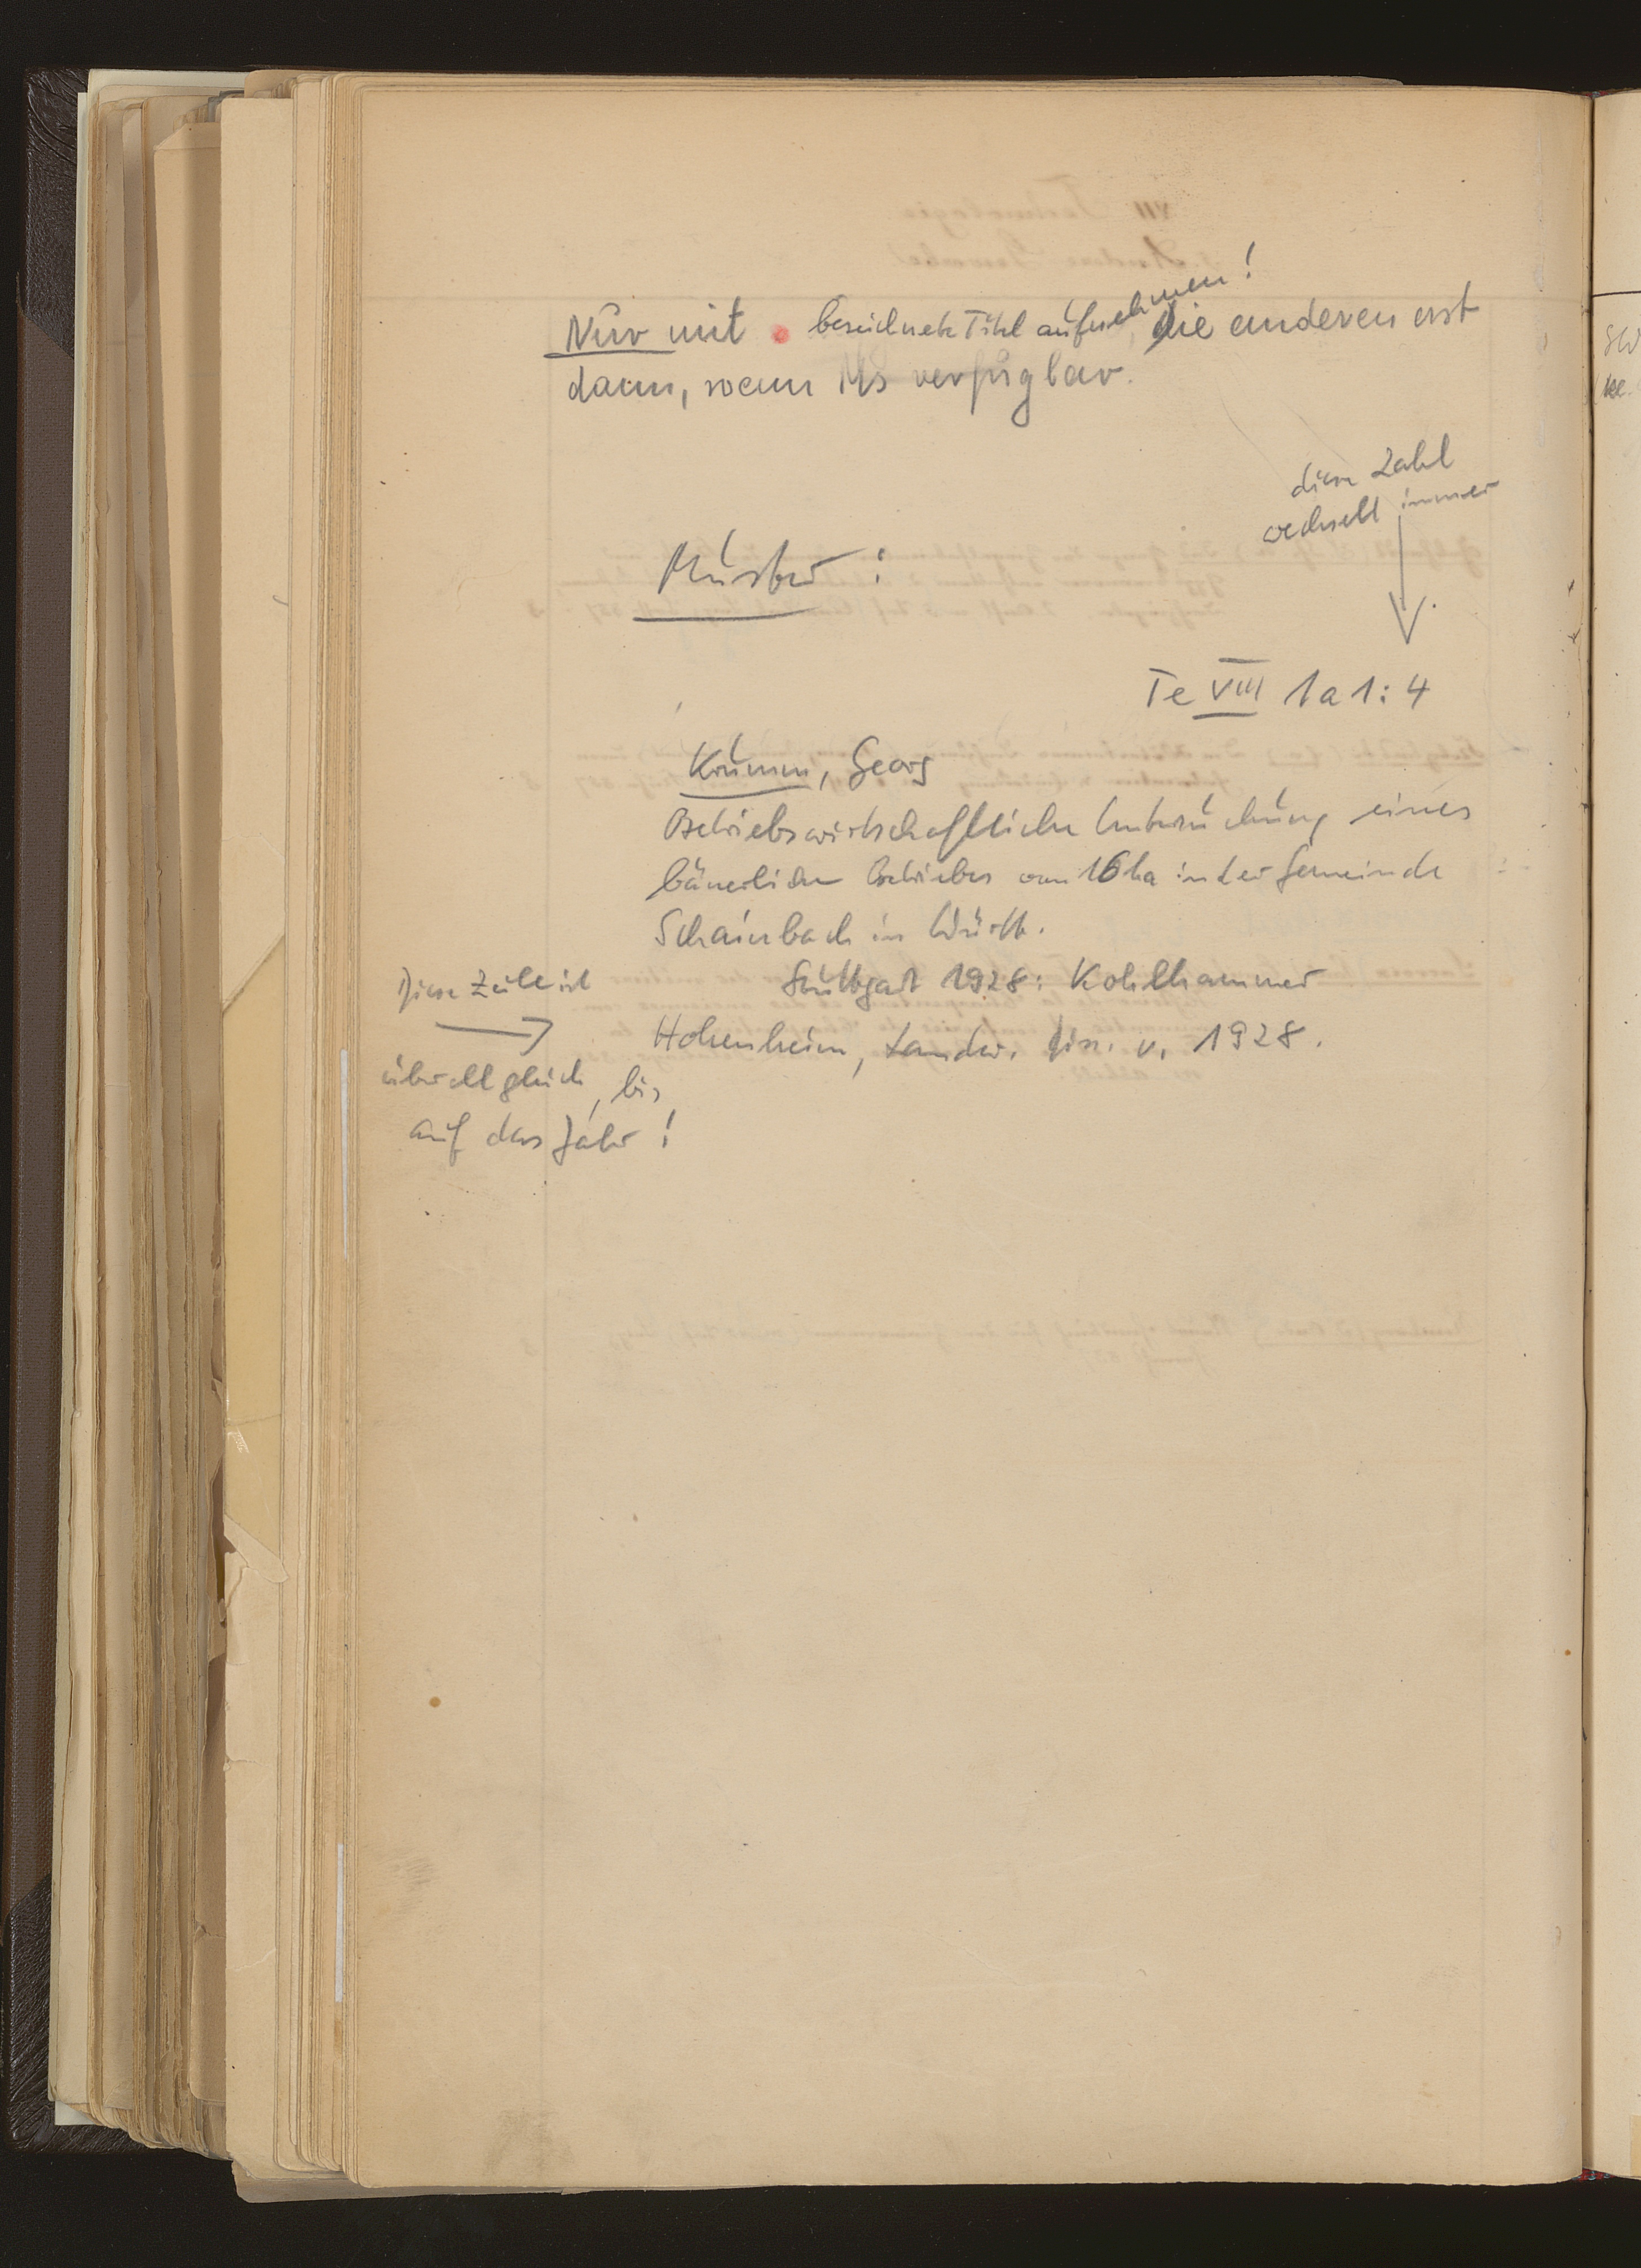 Nur mit • bezeichnete Titel aufnehmen! die anderen erst
dann, wenn Ms verfügbar.
diese Zahl
wechselt immer
Muster:
Te VIII 1a1:4
Krumm, Georg
Betriebswirtschaftliche Untersuchung eines
bäuerlichen Betriebes von 16 ha in der Gemeinde
Schainbach in Württ.
Stuttgart 1928: Kohlhammer
Hohenheim, Landw. Diss. v. 1928.
Diese Zeile ist
überall gleich, bis
auf das Jahr!